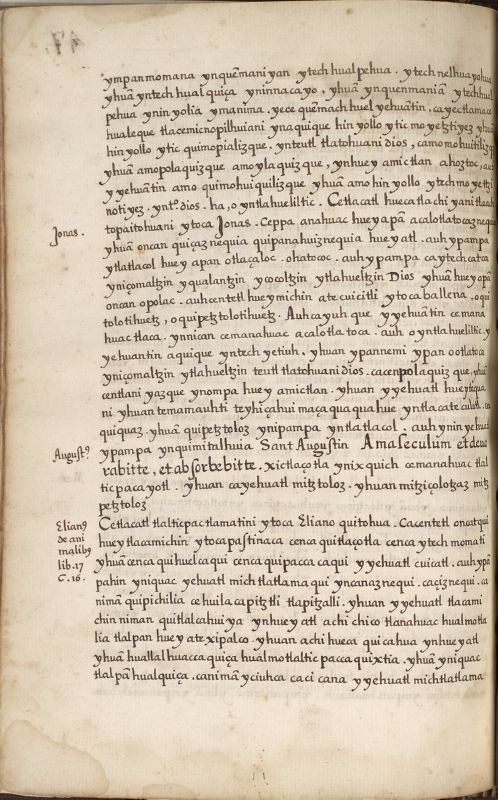 ympan momana ynquēmaniyan ytech hualpehua. ytech nelhuayohua
yhuā yntech hual quiça ynin nacayo, yhuā ynquenmaniā ytechhual
pehua ynin yolia ymanima. yece quēmach huel yehuātin. ca yectlamaca
hualeque tlacemicnopilhuiani ynaquique hin yollo ytic moyetztiyez yhuā
hin yollo ytic quimopializque. ynteutl tlatohuani dios, camo mohuitilizque
yhuā amopolaquizque amo ylaquizque, ynhuey amictlan ahoztoc, auh
yyehuātin amo quimohuiquilizque yhuā amo hin yollo ytech moyetzti
notiyez. yntº. dios. ha, o yntlahueliltic. Cetlacatl huecatlachiyani tlanch
topaitohuani ytoca Jonas. Ceppa anahuac hueyapā acalotlatocaznequia
Jonas.
yhuā oncan quiçaznequia quipanahuiznequia hueyatl. auh ypampa
ytlatlacol hueyapan otlaçaloc. ohatococ. auh ypampa caytechcatca
yniçomaltzin yqualantzin ycocoltzin ytlahueltzin Dios yhuā hueyapā
oncan opolac. auh centetl huey michin atecuicitli ytoca ballena. oqui
tolotihuetz, oquipetztolotihuetz. Auh cayuh que yyehuātin cemana
huac tlaca. ynnican cemanahuac acalotlatoca. auh o yntlahueliltic. y
yehuantin aquique yntech yetiuh. yhuan ypannemi ypan ootlatoca
yniçomaltzin ytlahueltzin teutl tlatohuani dios. cacenpolaquizque, yhuā
centlani yazque ynompa huey amictlan. yhuan yyehuatl huey
ni yhuan temamauhti teyhiçahui maçaquaquahue yntlacatecolotl. on
quiquaz. yhuā quipetztoloz ynipampa yntlatlacol. auh ynin yehuatl
ypampa ynquimitalhuia Sant Augustin Amaleculum et devo
Augustº.
rabitte, et absorbebitte. xictlaçotla ynixquich cemanahuac tlal
ticpacayotl. yhuan cayehuatl mitztoloz. yhuan mitziçolotzaz mitz
petztoloz
Cetlacatl tlalticpac tlamatini ytoca Eliano quitohua. Cacentetl oncatqui
Elianº
de ani
malibº
lib. 17
C. 16.
huey tlacamichin ytoca pastinaca cenca quitlaçotla cenca ytech momati
yhuā cenca qui huelcaqui cenca quipaccacaqui yyehuatl cuicatl. auh ypā
pahin yniquac yehuatl michtlatlama qui yncanaznequi. caçiznequi. ca
nimā quipichilia cehuilacapitztli tlapitzalli. yhuan yyehuatl tlacami
chin niman quitlalcahuiya ynhueyatl achi chico tlanahuac hualmotla
lia tlalpan hueyatexipalco. yhuan achi hueca quicahua ynhueyatl
yhuā huallalhuacca quiça hualmotlalticpaccaquixtia. yhuā yniquac
tlalpā hualquiça. canimā yciuhca caci cana yyehuatl michtlatlama